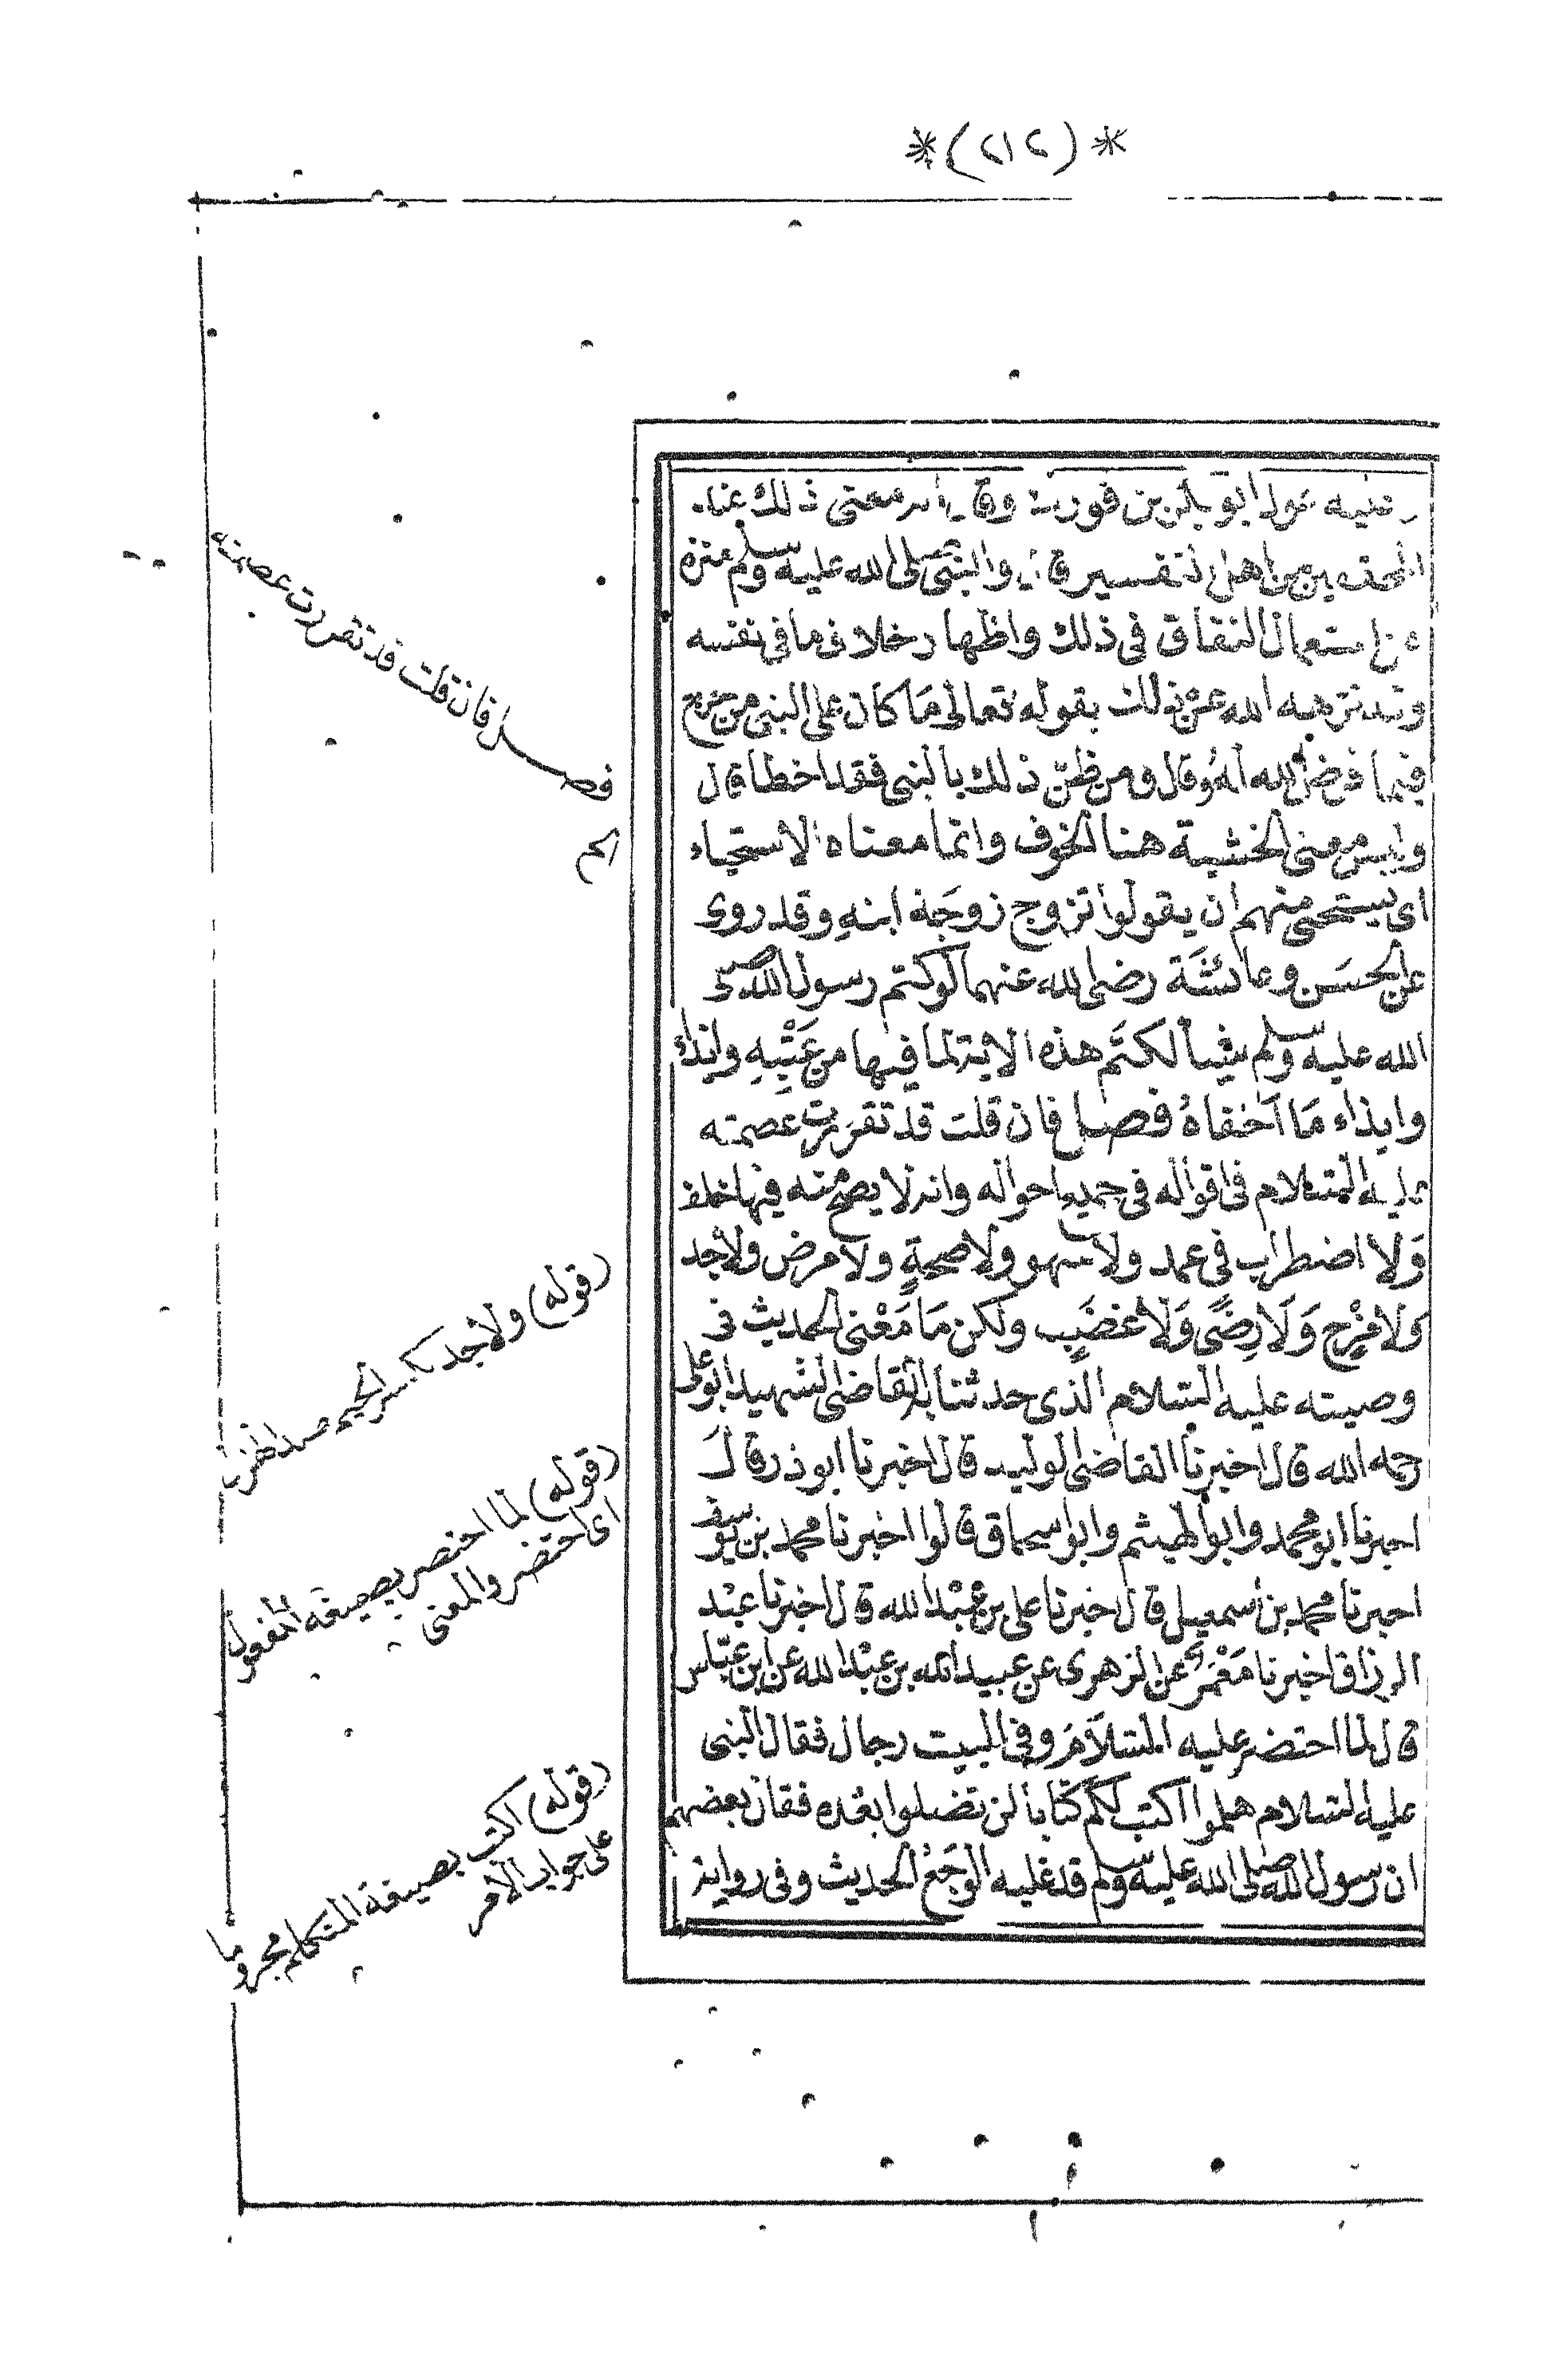 *(٢١٢)*
بن فورك وقال معنى ذلك عند
المحققين من اهل التفسير قال والنبى صلى الله عليه وسلم منزه
عن استعمال النفاق فى ذلك واظهار خلاف ما فى نفسه
وقد نزهه الله عن ذلك بقوله تعالى مَا كان على النبى من حرج
فيما فرض الله له وقال ومن ظن ذلك بالنبى فقد اخطأ قال
وليس معنى الخشية هنا الخوف وانما معناه الاستحياء
اى يستحى منهم ان يقولوا تزوج زوجَة ابنهِ وقد روى
عن الحسَن وعائشَة رضى الله عنهما لو كتم رسول الله صلى
الله عليه وسلم شيأ لكتَم هذه الاية لما فيها من عَتْبِهِ
وايذاء مَا اَخفاهُ فصل فان قلت قد تقررت عصمته
عليه السلام فى اقواله فى جميع احواله وانه لا يصح منه فيها خلف
وَلا اضطراب فى عمد ولا سهو ولا صحةٍ ولا مرض ولا جد
ولا مزْح وَلَا رِضًى وَلَا غضَبٍ ولكن مَا مَعْنى الحديث فى
وصيته عليه السلام الذى حدثنا به القاضى الشهيد ابو على
رحمه الله قال اخبرنا القاضى ابو الوليد قال اخبرنا ابو ذر قال
اخبرنا ابو محمد وابو الهيثم وابو اسحاق قالوا اخبرنا محمد بن يوسف
اخبرنا محمد بن اسمعيل قال اخبرنا على بن عبْد الله قال اخبرنا عبْد
الرزاق اخبرنا مَعْمَر عن الزهرى عن عبيد الله بن عبْد الله عن ابن عبّاس
قال لما احتضر عليه السَلاَمَ وفى البيت رجال فقال النبى
عليه السلام هلموا اكتب لكم كتَابا لن تضلوا بعْده فقال بعضهم
ان رسول الله صلى الله عليه وسلم قد غلبه الوَجَعُ الحديث وفى رواية
فصل فان قلت قد تقررت عصمته
الخ
(قوله) ولا جد بكسر الجيم ضد المزح
(قوله) لما احتضر بصيغة المفعول
اى احتضر والمعنى
(قوله) اكتب بصيغة المتكلم مجزوما
على جواب الامر